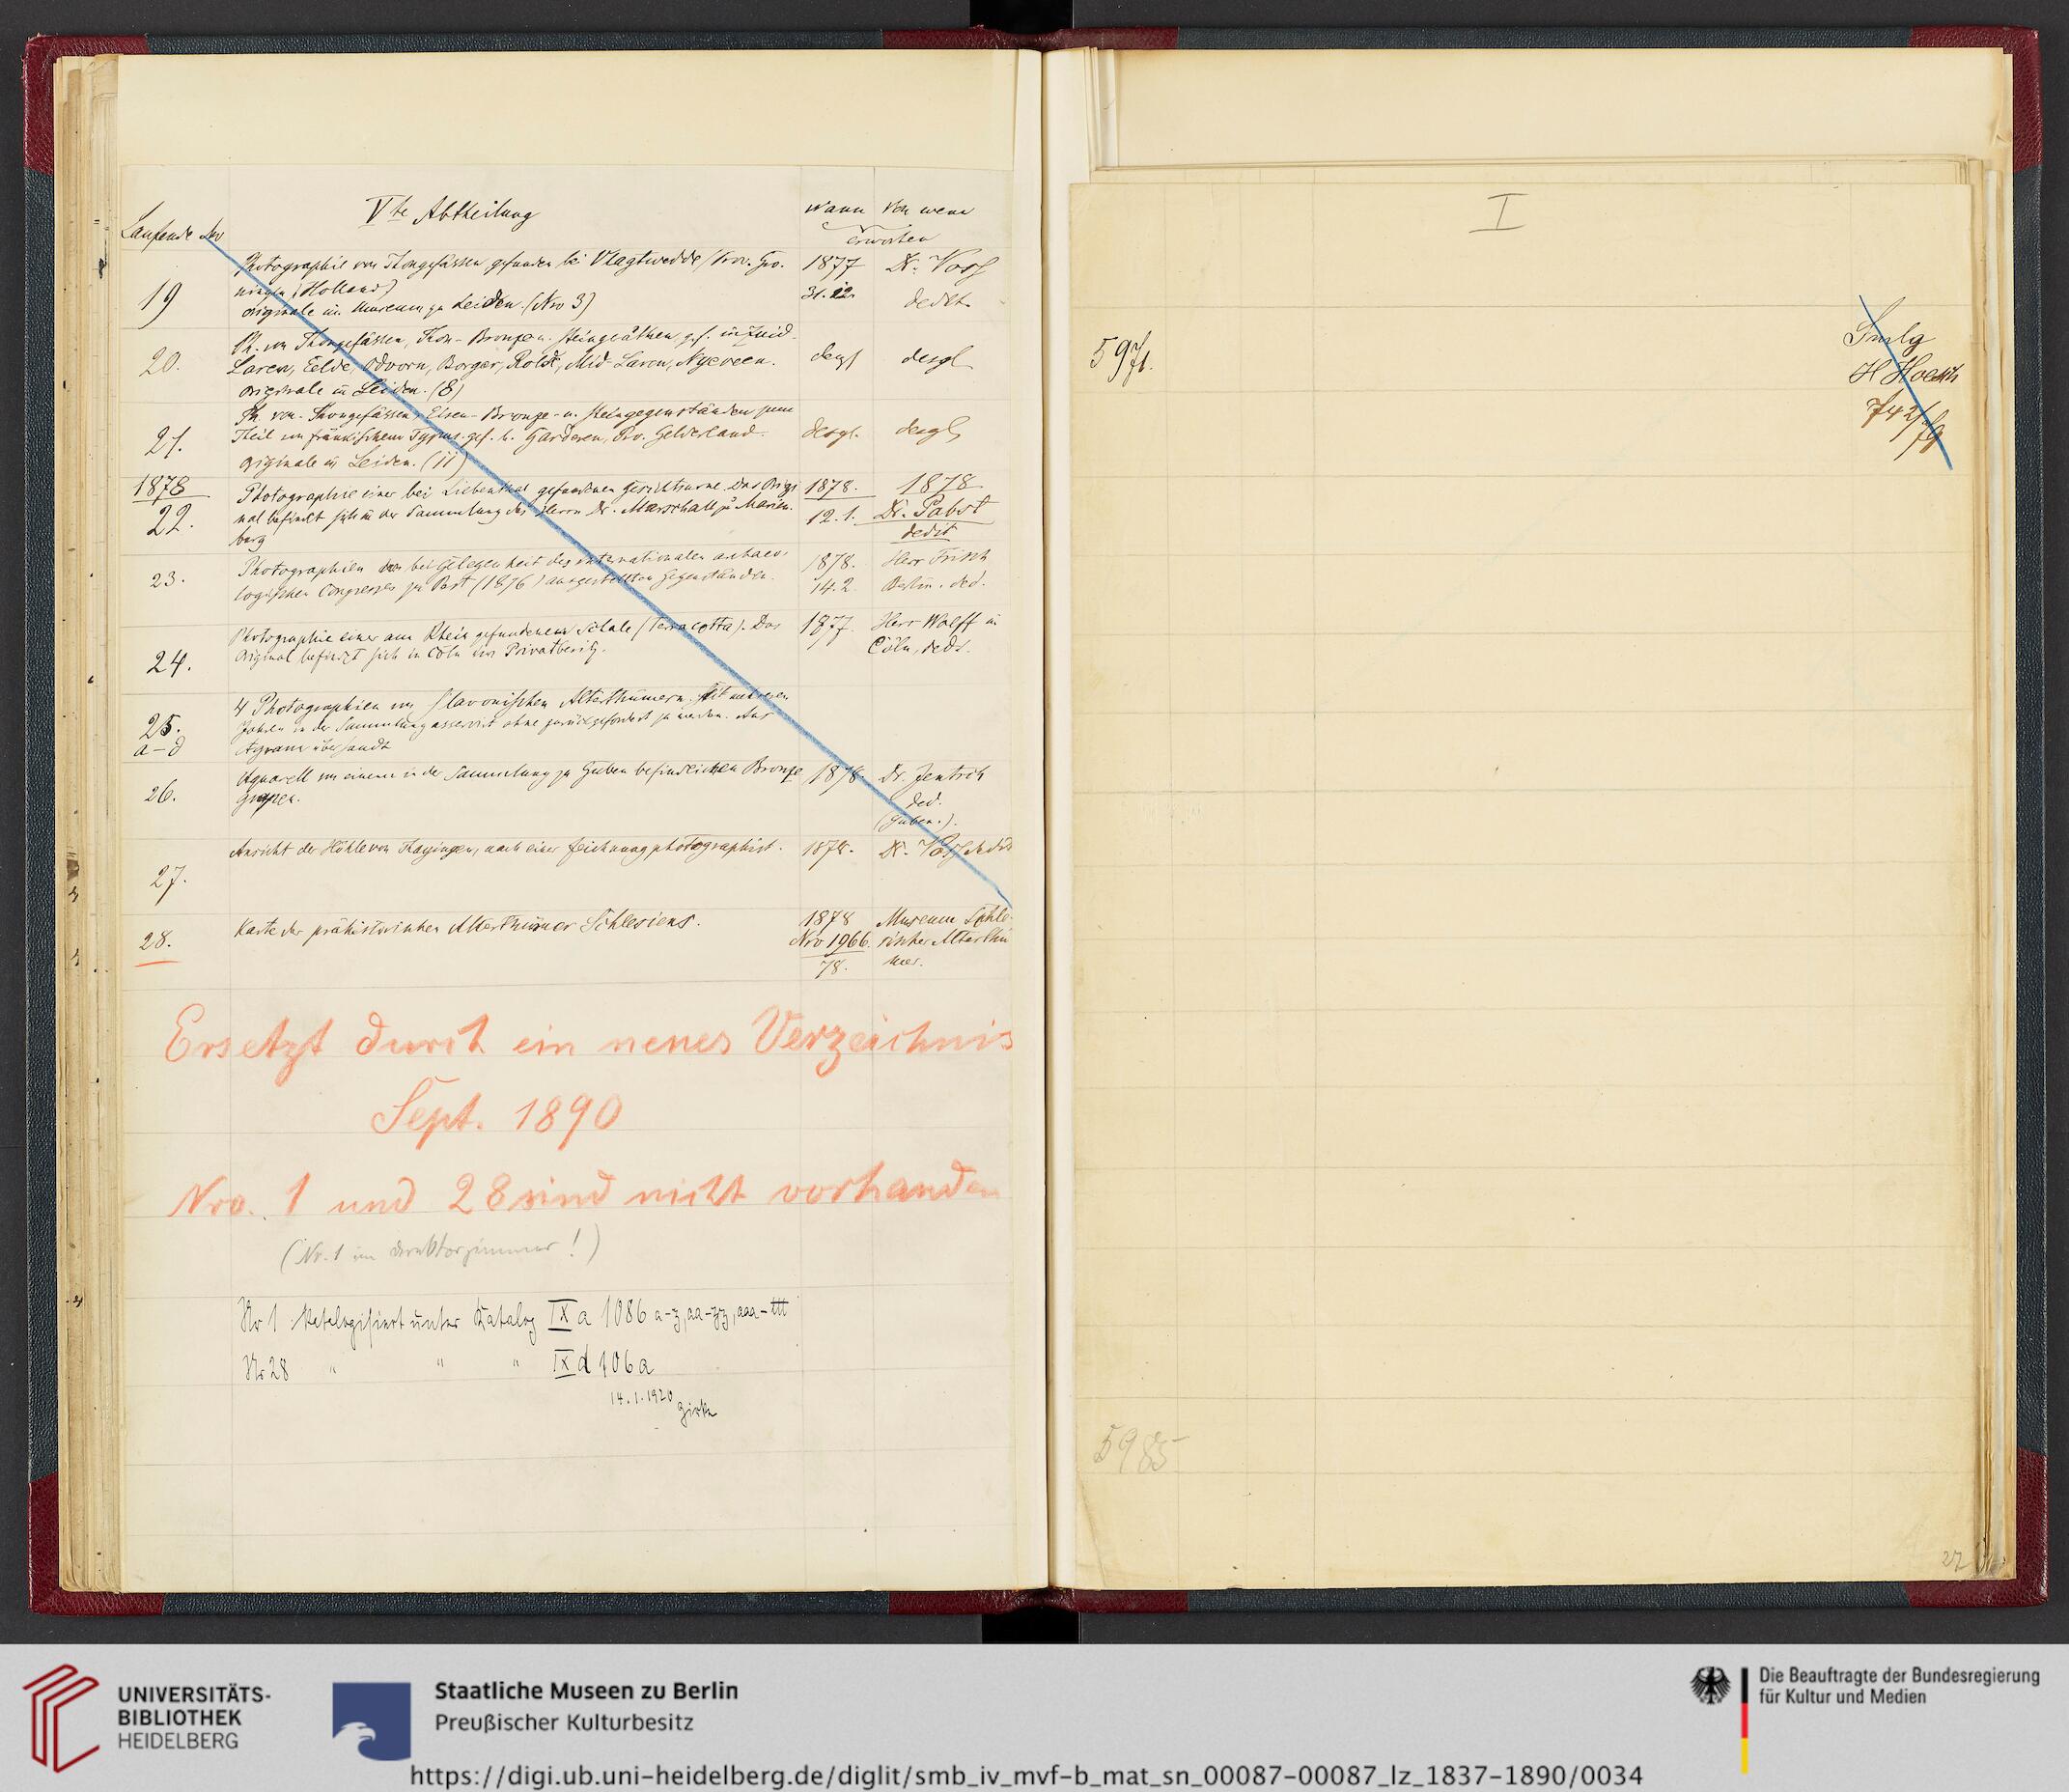 Laufende No
Vte Abtheilung
wann von wem
erworben
19
Photographie von Thongefässen gefunden bei Vlagtwedde / Prov. Gro-
ningen (Holland)
originale im Museum zu Leiden. (Nro 3)
1877
31.12.
Dr. Voss
dedit
20.
Ph. von Thongefässen, Thon- Bronze u. Steingeräthen gef. in Zuid-
Laren, Eelde, Odoorn, Borger, Rolde, Mid-Laren, Nyeveen.
originale in Leiden. (8)
desgl
desgl
21.
Ph. von Thongefässen, Eisen- Bronze- u. Steingegenständen zum
Theil von fränkischem Typus. gef. b. Garderen, Prov. Gelderland.
originale in Leiden. (11)
desgl.
desgl
1878
22.
Photographie einer bei Liebenthal gefundenen Gesichtsurne. Das Origi
nal befindet sich in der Sammlung des Herrn Dr. Marschall zu Marien-
burg
1878.
12.1.
1878
Dr. Pabst
dedit
23.
Photographien der bei Gelegenheit des internationalen archaeo-
logischen Congresses zu Pest (1876) ausgestellten Gegenstände.
1878.
14.2.
Herr Frisch
Berlin. ded.
24.
Photographie einer am Rhein gefundenen Schale (Terracotta). Das
Original befindet sich in Cöln im Privatbesitz.
1877.
Herr Wolff in
Cöln, dedt.
25.
a-d
4 Photographien von slavonischen Alterthümern. Seit mehreren
Jahren in der Sammlung asservirt ohne zurückgefordert zu werden. Aus
Agram übersandt
26.
Aquarell von einem in der Sammlung zu Guben befindlichen Bronze
grapen.
1878.
Dr. Jentsch
ded.
(Guben.).
27.
Ansicht der Höhle von Thayingen, nach einer Zeichnung photographirt.
1878.
Dr. Voss dedit
28.
Karte der prähistorischen Alterthümer Schlesiens.
1878
Nro 1966.
78.
Museum Schle-
sischer Alterthü
mer.
Ersetzt durch ein neues Verzeichnis
Sept. 1890
Nro. 1 und 28 sind nicht vorhanden
(Nr. 1 im Direktorzimmer!)
Nr 1 Katalogisiert unter Katalog IX a 1086 a-z, aa-zz, aaa-ttt
Nr 28 " " " IX d 106a
14.1.1920
I
597
Smlg
H Hoesch
742/79
5985
27
UNIVERSITÄTS-
BIBLIOTHEK
HEIDELBERG
Staatliche Museen zu Berlin
Preußischer Kulturbesitz
Die Beauftragte der Bundesregierung
für Kultur und Medien
https://digi.ub.uni-heidelberg.de/diglit/smb_iv_mvf-b_mat_sn_00087-00087_lz_1837-1890/0034